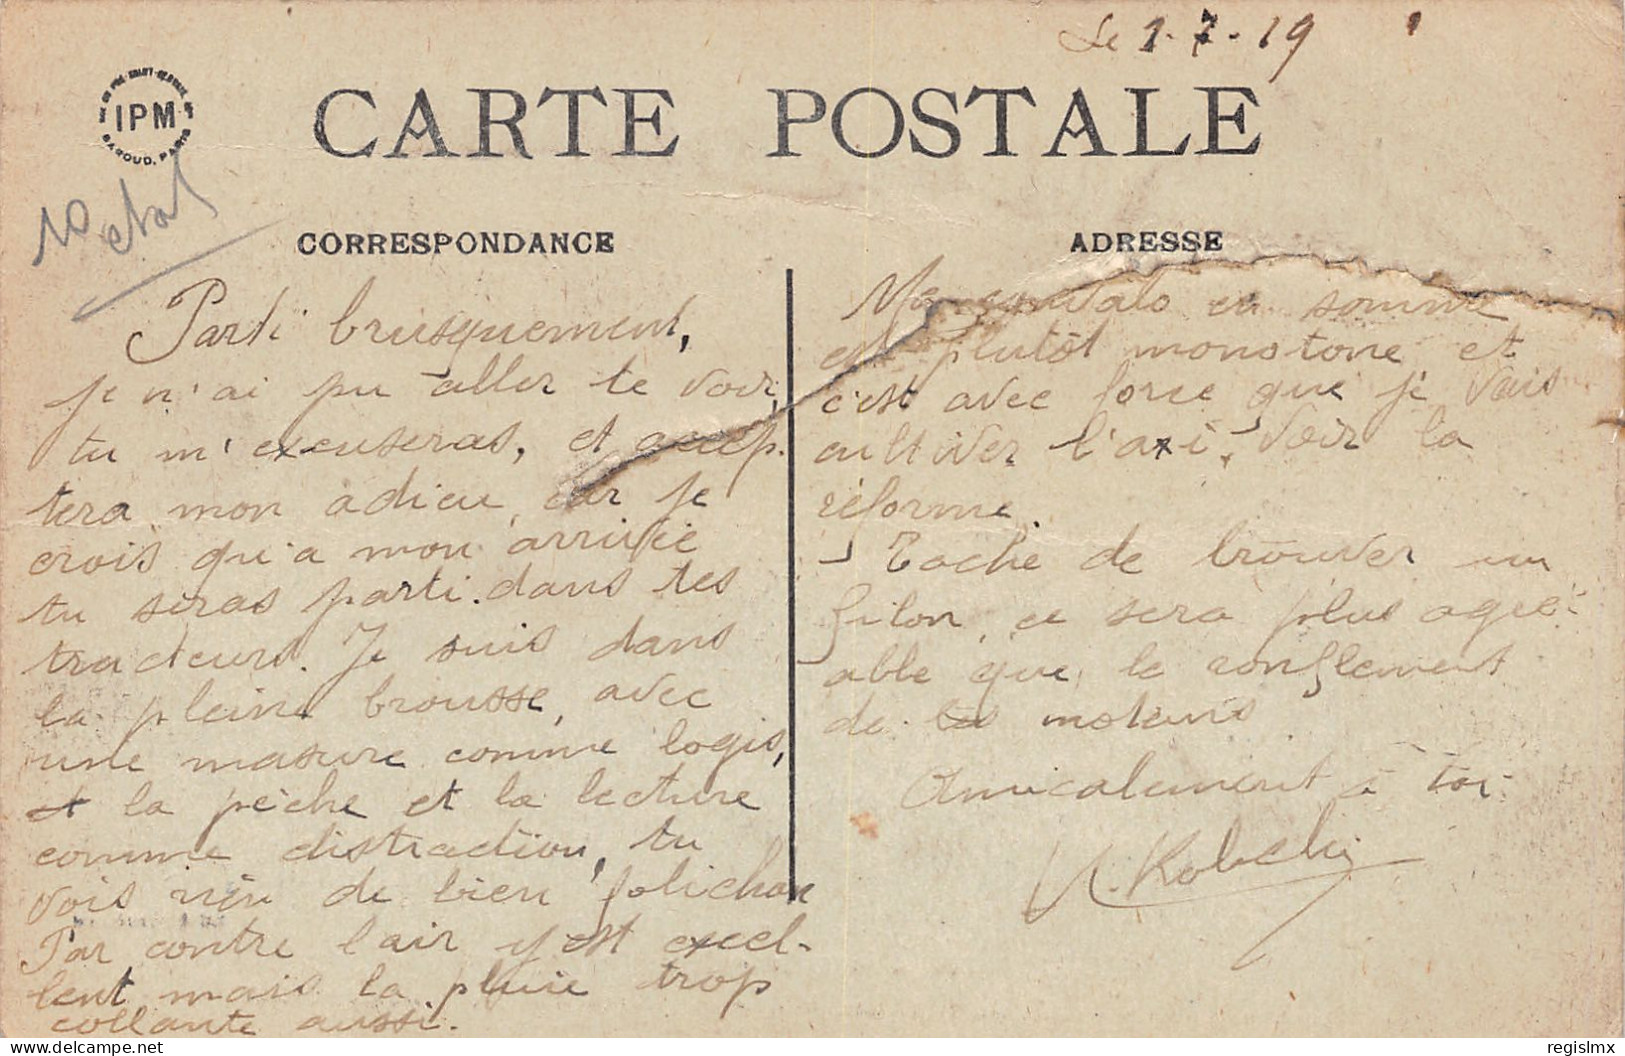 Le 1-7-19
IPM
BAROUD, PARIS
CARTE POSTALE
CORRESPONDANCE
ADRESSE
Parti brusquement,
je n'ai pu aller te voir,
tu m'excuseras, et accep-
tera mon adieu, car je
crois qu'a mon arrivée
tu seras parti dans tes
tracteurs. Je suis dans
la pleine brousse, avec
une masure comme logis,
et la pèche et la lecture
comme distraction, tu
vois rien de bien folichon
Par contre l'air y est excel-
lent mais la pluie trop
collante aussi.
en somme
est plutôt monotone et
c'est avec force que je vais
cultiver l'axi, voir la
réforme.
Tache de trouver un
filon, ce sera plus agré-
able que le ronflement
de tes moteurs
Amicalement à toi
delcampe.net
regislmx